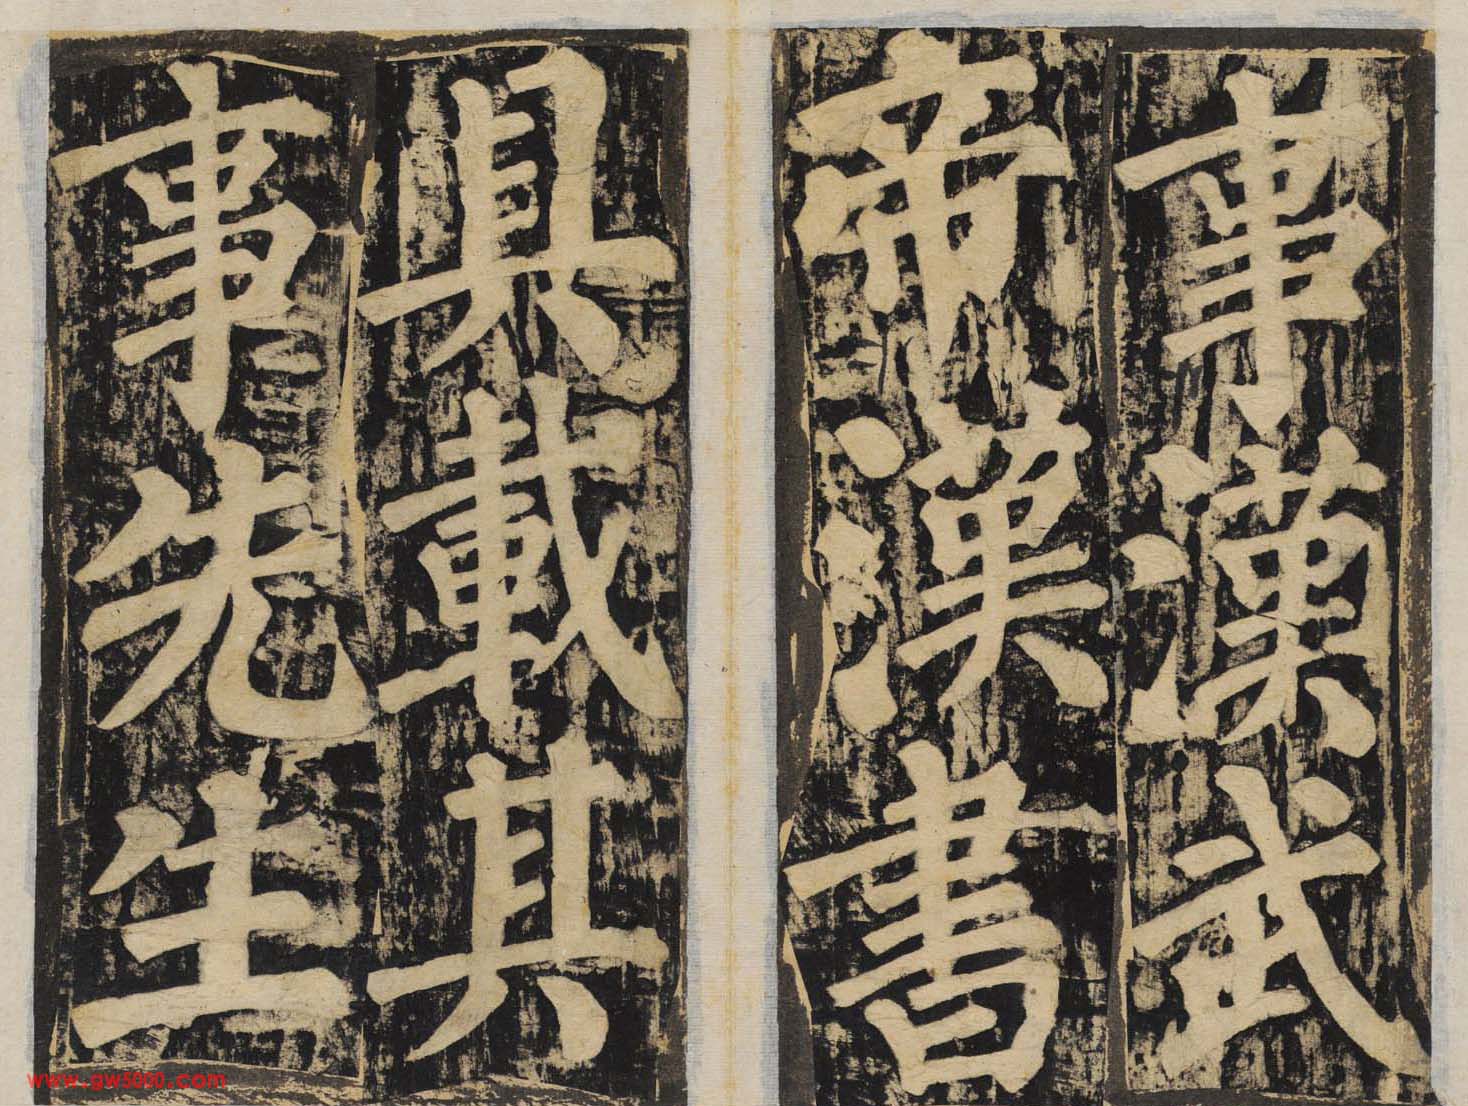 事漢武
帝漢書
具載其
事先生
www.gw5000.com